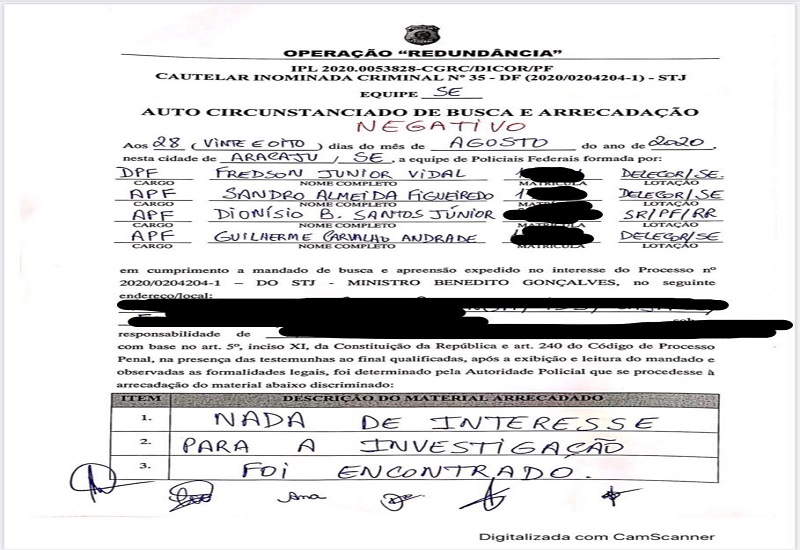 OPERAÇÃO “REDUNDÂNCIA”
IPL 2020.0053828-CGRC/DICOR/PF
CAUTELAR INOMINADA CRIMINAL Nº 35 - DF (2020/0204204-1) - STJ
EQUIPE SE
AUTO CIRCUNSTANCIADO DE BUSCA E ARRECADAÇÃO
NEGATIVO
Aos 28 (VINTE E OITO) dias do mês de AGOSTO do ano de 2020,
nesta cidade de ARACAJU, SE, a equipe de Policiais Federais formada por:
DPF FREDSON JUNIOR VIDAL DELEGOR/SE.
CARGO NOME COMPLETO MATRÍCULA LOTAÇÃO
APF SANDRO ALMEIDA FIGUEIREDO DELEGOR/SE
CARGO NOME COMPLETO MATRÍCULA LOTAÇÃO
APF DIONÍSIO B. SANTOS JÚNIOR SR/PF/RR
CARGO NOME COMPLETO MATRÍCULA LOTAÇÃO
APF GUILHERME CARVALHO ANDRADE DELEGOR/SE
CARGO NOME COMPLETO MATRÍCULA LOTAÇÃO
em cumprimento a mandado de busca e apreensão expedido no interesse do Processo nº
2020/0204204-1 – DO STJ - MINISTRO BENEDITO GONÇALVES, no seguinte
endereço/local:
sob
responsabilidade de
com base no art. 5º, inciso XI, da Constituição da República e art. 240 do Código de Processo
Penal, na presença das testemunhas ao final qualificadas, após a exibição e leitura do mandado e
observadas as formalidades legais, foi determinado pela Autoridade Policial que se procedesse à
arrecadação do material abaixo discriminado:
ITEM DESCRIÇÃO DO MATERIAL ARRECADADO
1. NADA DE INTERESSE
2. PARA A INVESTIGAÇÃO
3. FOI ENCONTRADO.
Ana
Digitalizada com CamScanner